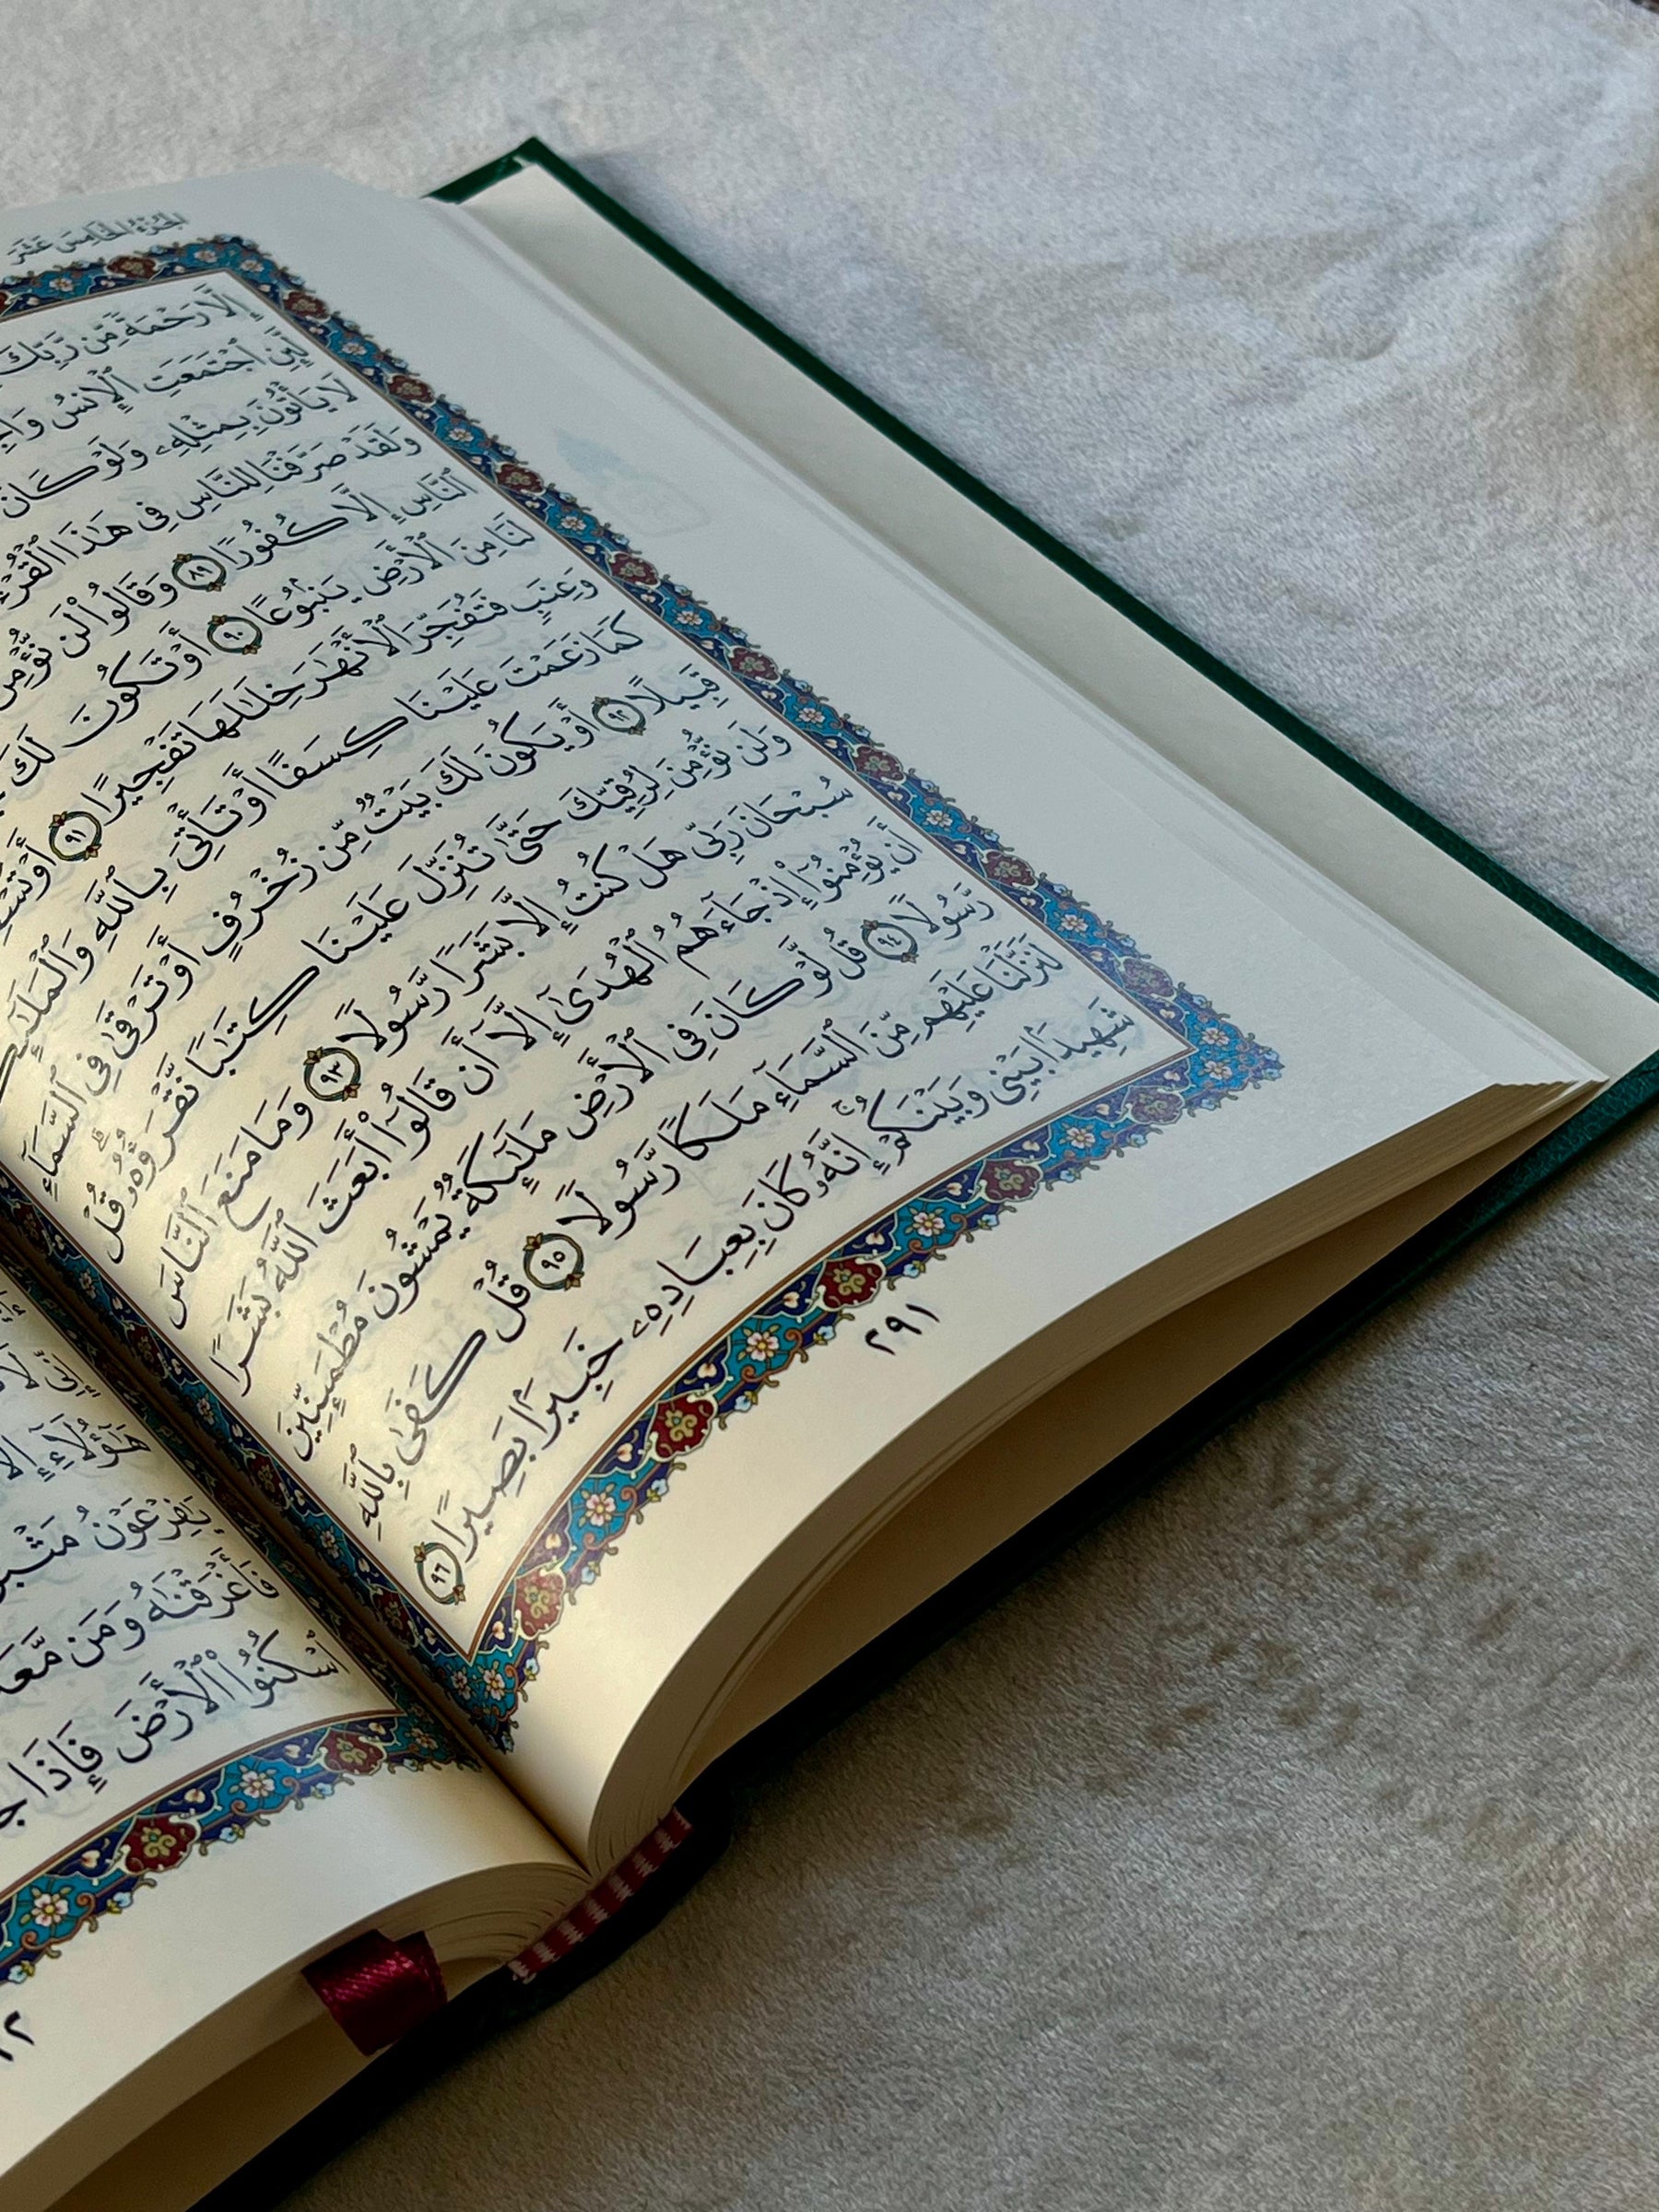 الجزء الخامس عشر
إِلَّا رَحْمَةً مِّن رَّبِّكَ
لَّئِنِ ٱجْتَمَعَتِ ٱلْإِنسُ وَٱلْجِ
لَا يَأْتُونَ بِمِثْلِهِۦ وَلَوْ كَانَ
وَلَقَدْ صَرَّفْنَا لِلنَّاسِ فِى هَـٰذَا ٱلْقُرْءَ
ٱلنَّاسِ إِلَّا كُفُورًا ٨٩ وَقَالُوا۟ لَن نُّؤْمِنَ
لَنَا مِنَ ٱلْأَرْضِ يَنۢبُوعًا ٩٠ أَوْ تَكُونَ لَكَ
وَعِنَبٍ فَتُفَجِّرَ ٱلْأَنْهَـٰرَ خِلَـٰلَهَا تَفْجِيرًا ٩١ أَوْ تُسْقِ
كَمَا زَعَمْتَ عَلَيْنَا كِسَفًا أَوْ تَأْتِىَ بِٱللَّهِ وَٱلْمَلَـٰٓئِكَ
قَبِيلًا ٩٢ أَوْ يَكُونَ لَكَ بَيْتٌ مِّن زُخْرُفٍ أَوْ تَرْقَىٰ فِى ٱلسَّمَآءِ
وَلَن نُّؤْمِنَ لِرُقِيِّكَ حَتَّىٰ تُنَزِّلَ عَلَيْنَا كِتَـٰبًا نَّقْرَؤُهُۥ ۗ قُلْ
سُبْحَانَ رَبِّى هَلْ كُنتُ إِلَّا بَشَرًا رَّسُولًا ٩٣ وَمَا مَنَعَ ٱلنَّاسَ
أَن يُؤْمِنُوٓا۟ إِذْ جَآءَهُمُ ٱلْهُدَىٰٓ إِلَّآ أَن قَالُوٓا۟ أَبَعَثَ ٱللَّهُ بَشَرًا
رَّسُولًا ٩٤ قُل لَّوْ كَانَ فِى ٱلْأَرْضِ مَلَـٰٓئِكَةٌ يَمْشُونَ مُطْمَئِنِّينَ
لَنَزَّلْنَا عَلَيْهِم مِّنَ ٱلسَّمَآءِ مَلَكًا رَّسُولًا ٩٥ قُلْ كَفَىٰ بِٱللَّهِ
شَهِيدًۢا بَيْنِى وَبَيْنَكُمْ ۚ إِنَّهُۥ كَانَ بِعِبَادِهِۦ خَبِيرًۢا بَصِيرًا ٩٦
٢٩١
إِنِّى لَأَ
هَـٰٓؤُلَآءِ إِلَّا
يَـٰفِرْعَوْنُ مَثْبُ
فَأَغْرَقْنَـٰهُ وَمَن مَّعَ
ٱسْكُنُوا۟ ٱلْأَرْضَ فَإِذَا جَ